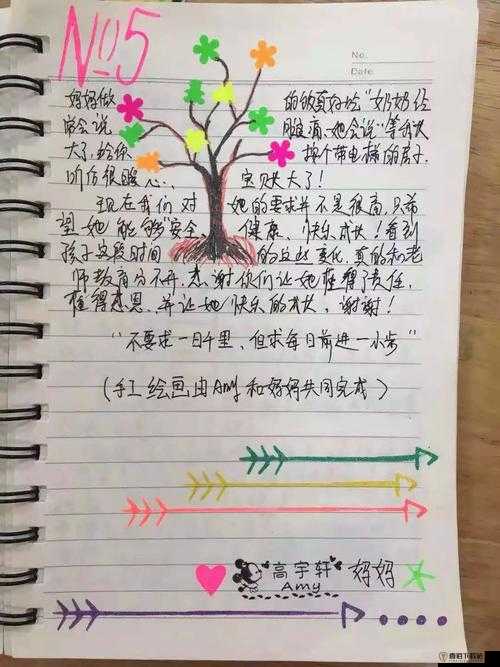 No5
No.
Date.
妈妈做的饭真好吃"奶奶经
常会说腿痛,她会说"等我长
大了,给你换个带电梯的房子.
听后很暖心.. 宝贝长大了!
现在我们对她的要求并不是很高,只希
望她能够"安全、健康、快乐成长!看到
孩子这段时间的这些变化,真的和老
师教育分不开,感谢你们让她懂得了责任,
懂得感恩,并让她快乐的成长,谢谢!
"不要求一日千里、但求每日前进一小步"
(手工绘画由Amy和妈妈共同完成)
高宇轩 妈妈
Amy